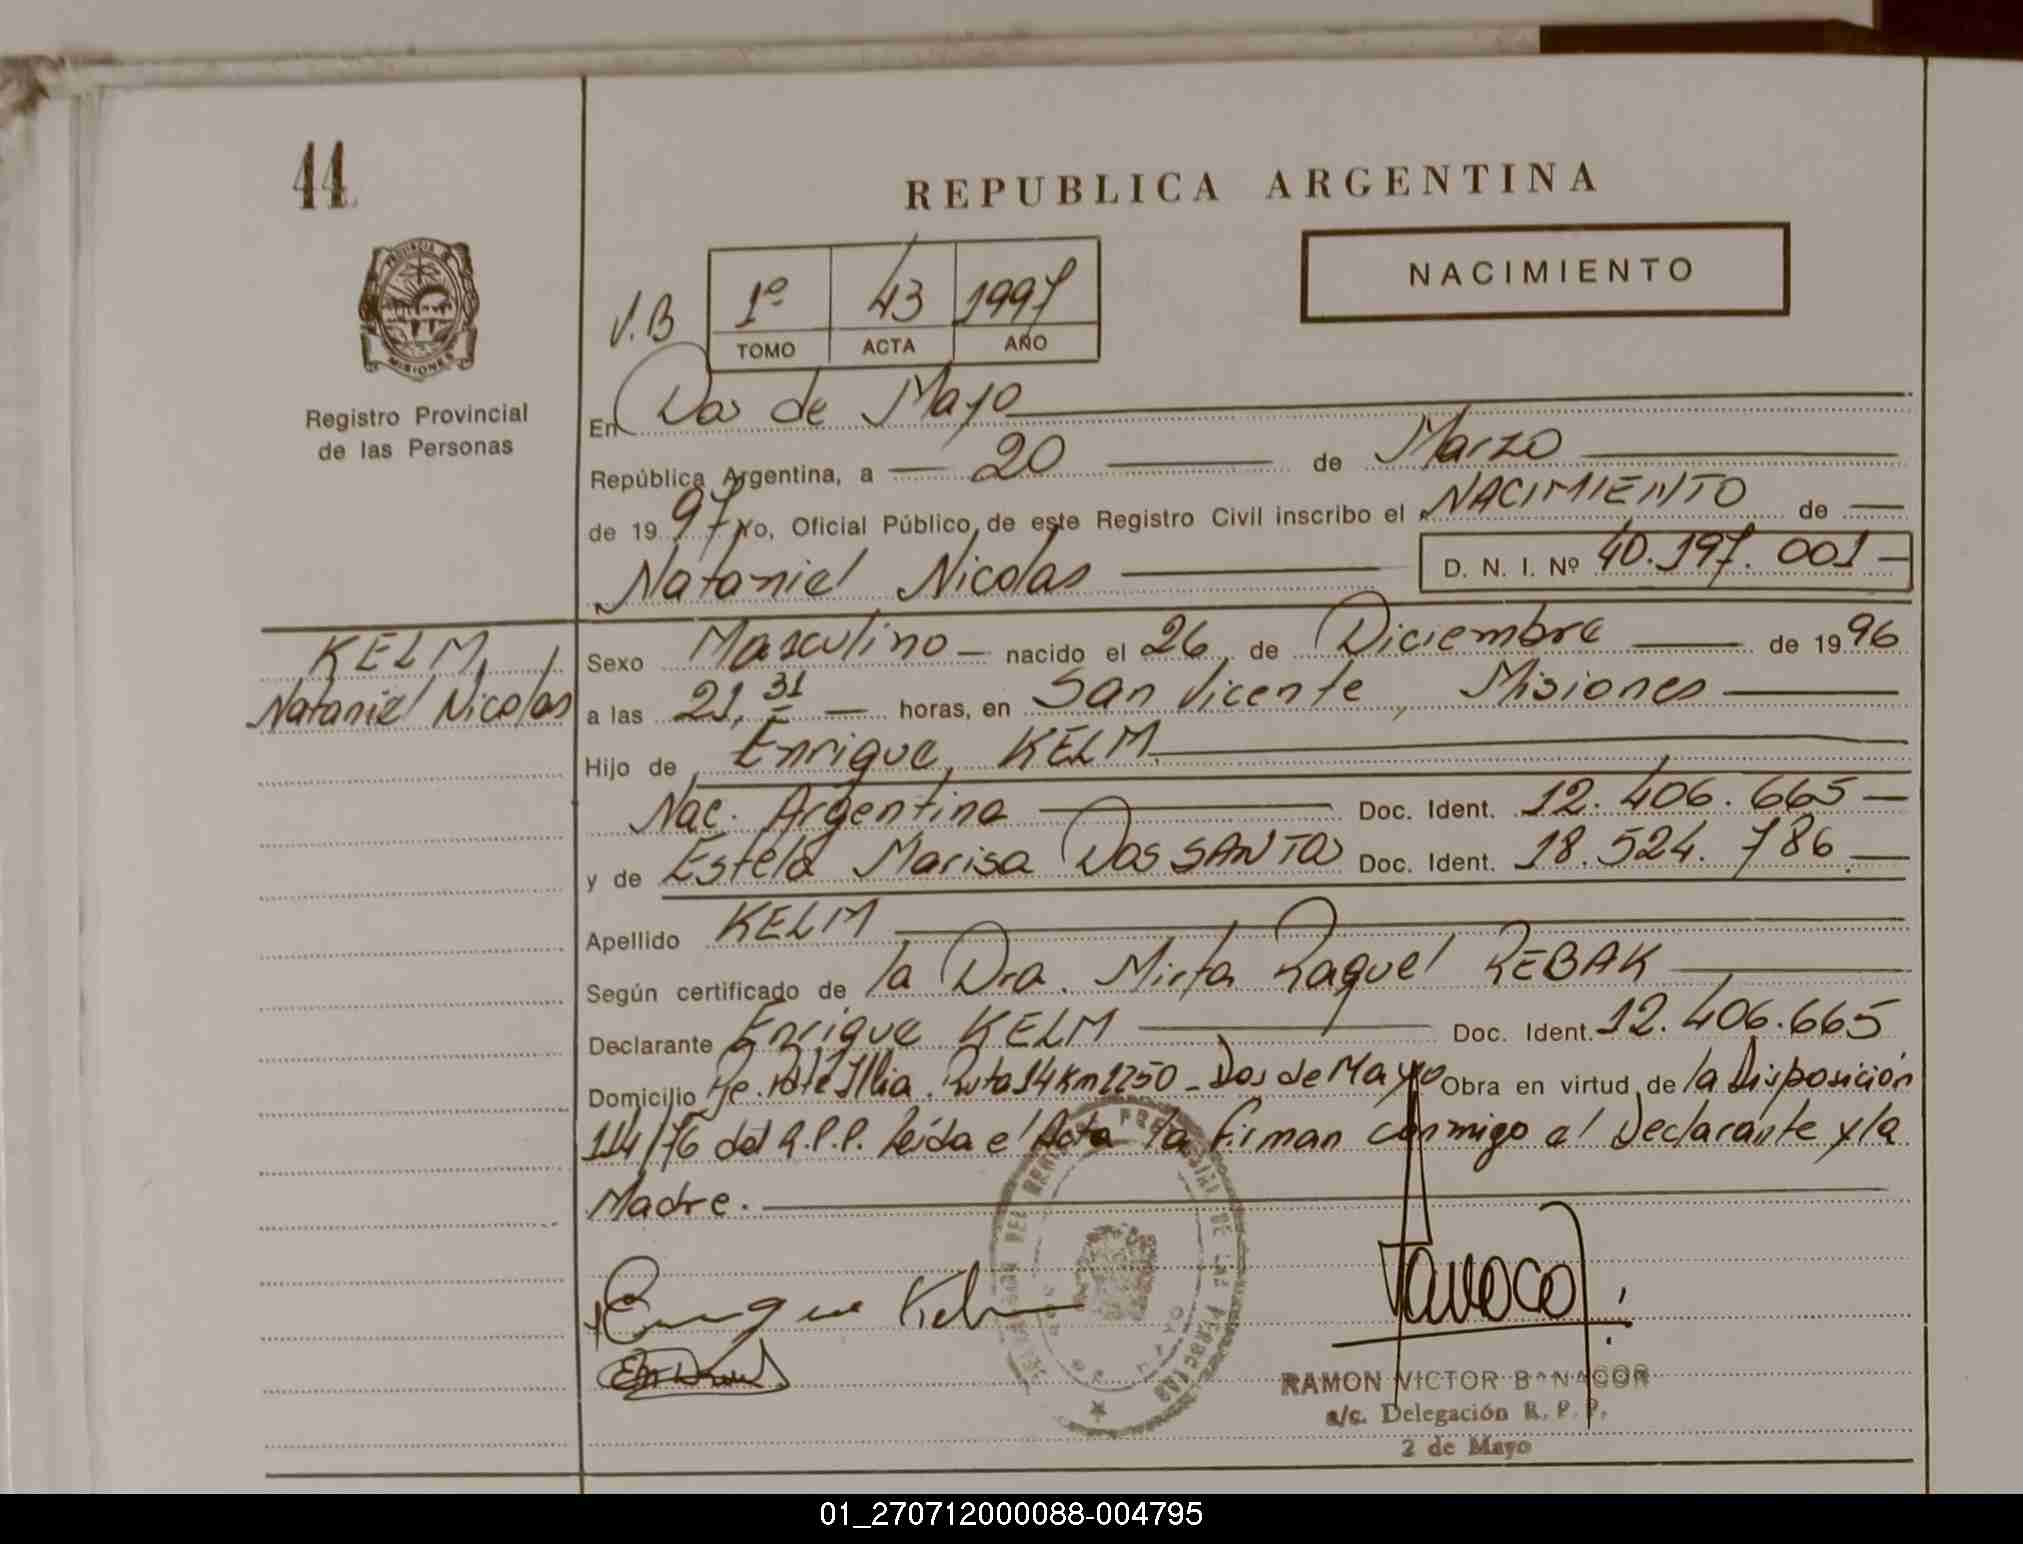 44
REPUBLICA ARGENTINA
NACIMIENTO
V.B
1º 43 1997
TOMO ACTA AÑO
PROVINCIA DE
MISIONES
Registro Provincial
de las Personas
En Dos de Mayo
República Argentina, a 20 de Marzo
de 1997 Yo, Oficial Público de este Registro Civil inscribo el NACIMIENTO de
Nataniel Nicolas D. N. I. Nº 40.197.001
KELM,
Nataniel Nicolas
Sexo Masculino nacido el 26 de Diciembre de 1996
a las 21,31 horas, en San Vicente, Misiones
Hijo de Enrique, KELM
Nac. Argentina Doc. Ident. 12.406.665
y de Estela Marisa Dos SANTOS Doc. Ident. 18.524.786
Apellido KELM
Según certificado de la Dra. Mirta Raquel REBAK
Declarante Enrique KELM Doc. Ident. 12.406.665
Domicilio Pte Illia. Ruta 14 Km 1250 - Dos de Mayo Obra en virtud de la Disposición
114/76 del R.P.P. Leída el Acta la firman conmigo el Declarante y la
Madre.
Enrique Kelm
RAMON VICTOR BANACOR
a/c. Delegación R. P. P.
2 de Mayo
01_270712000088-004795